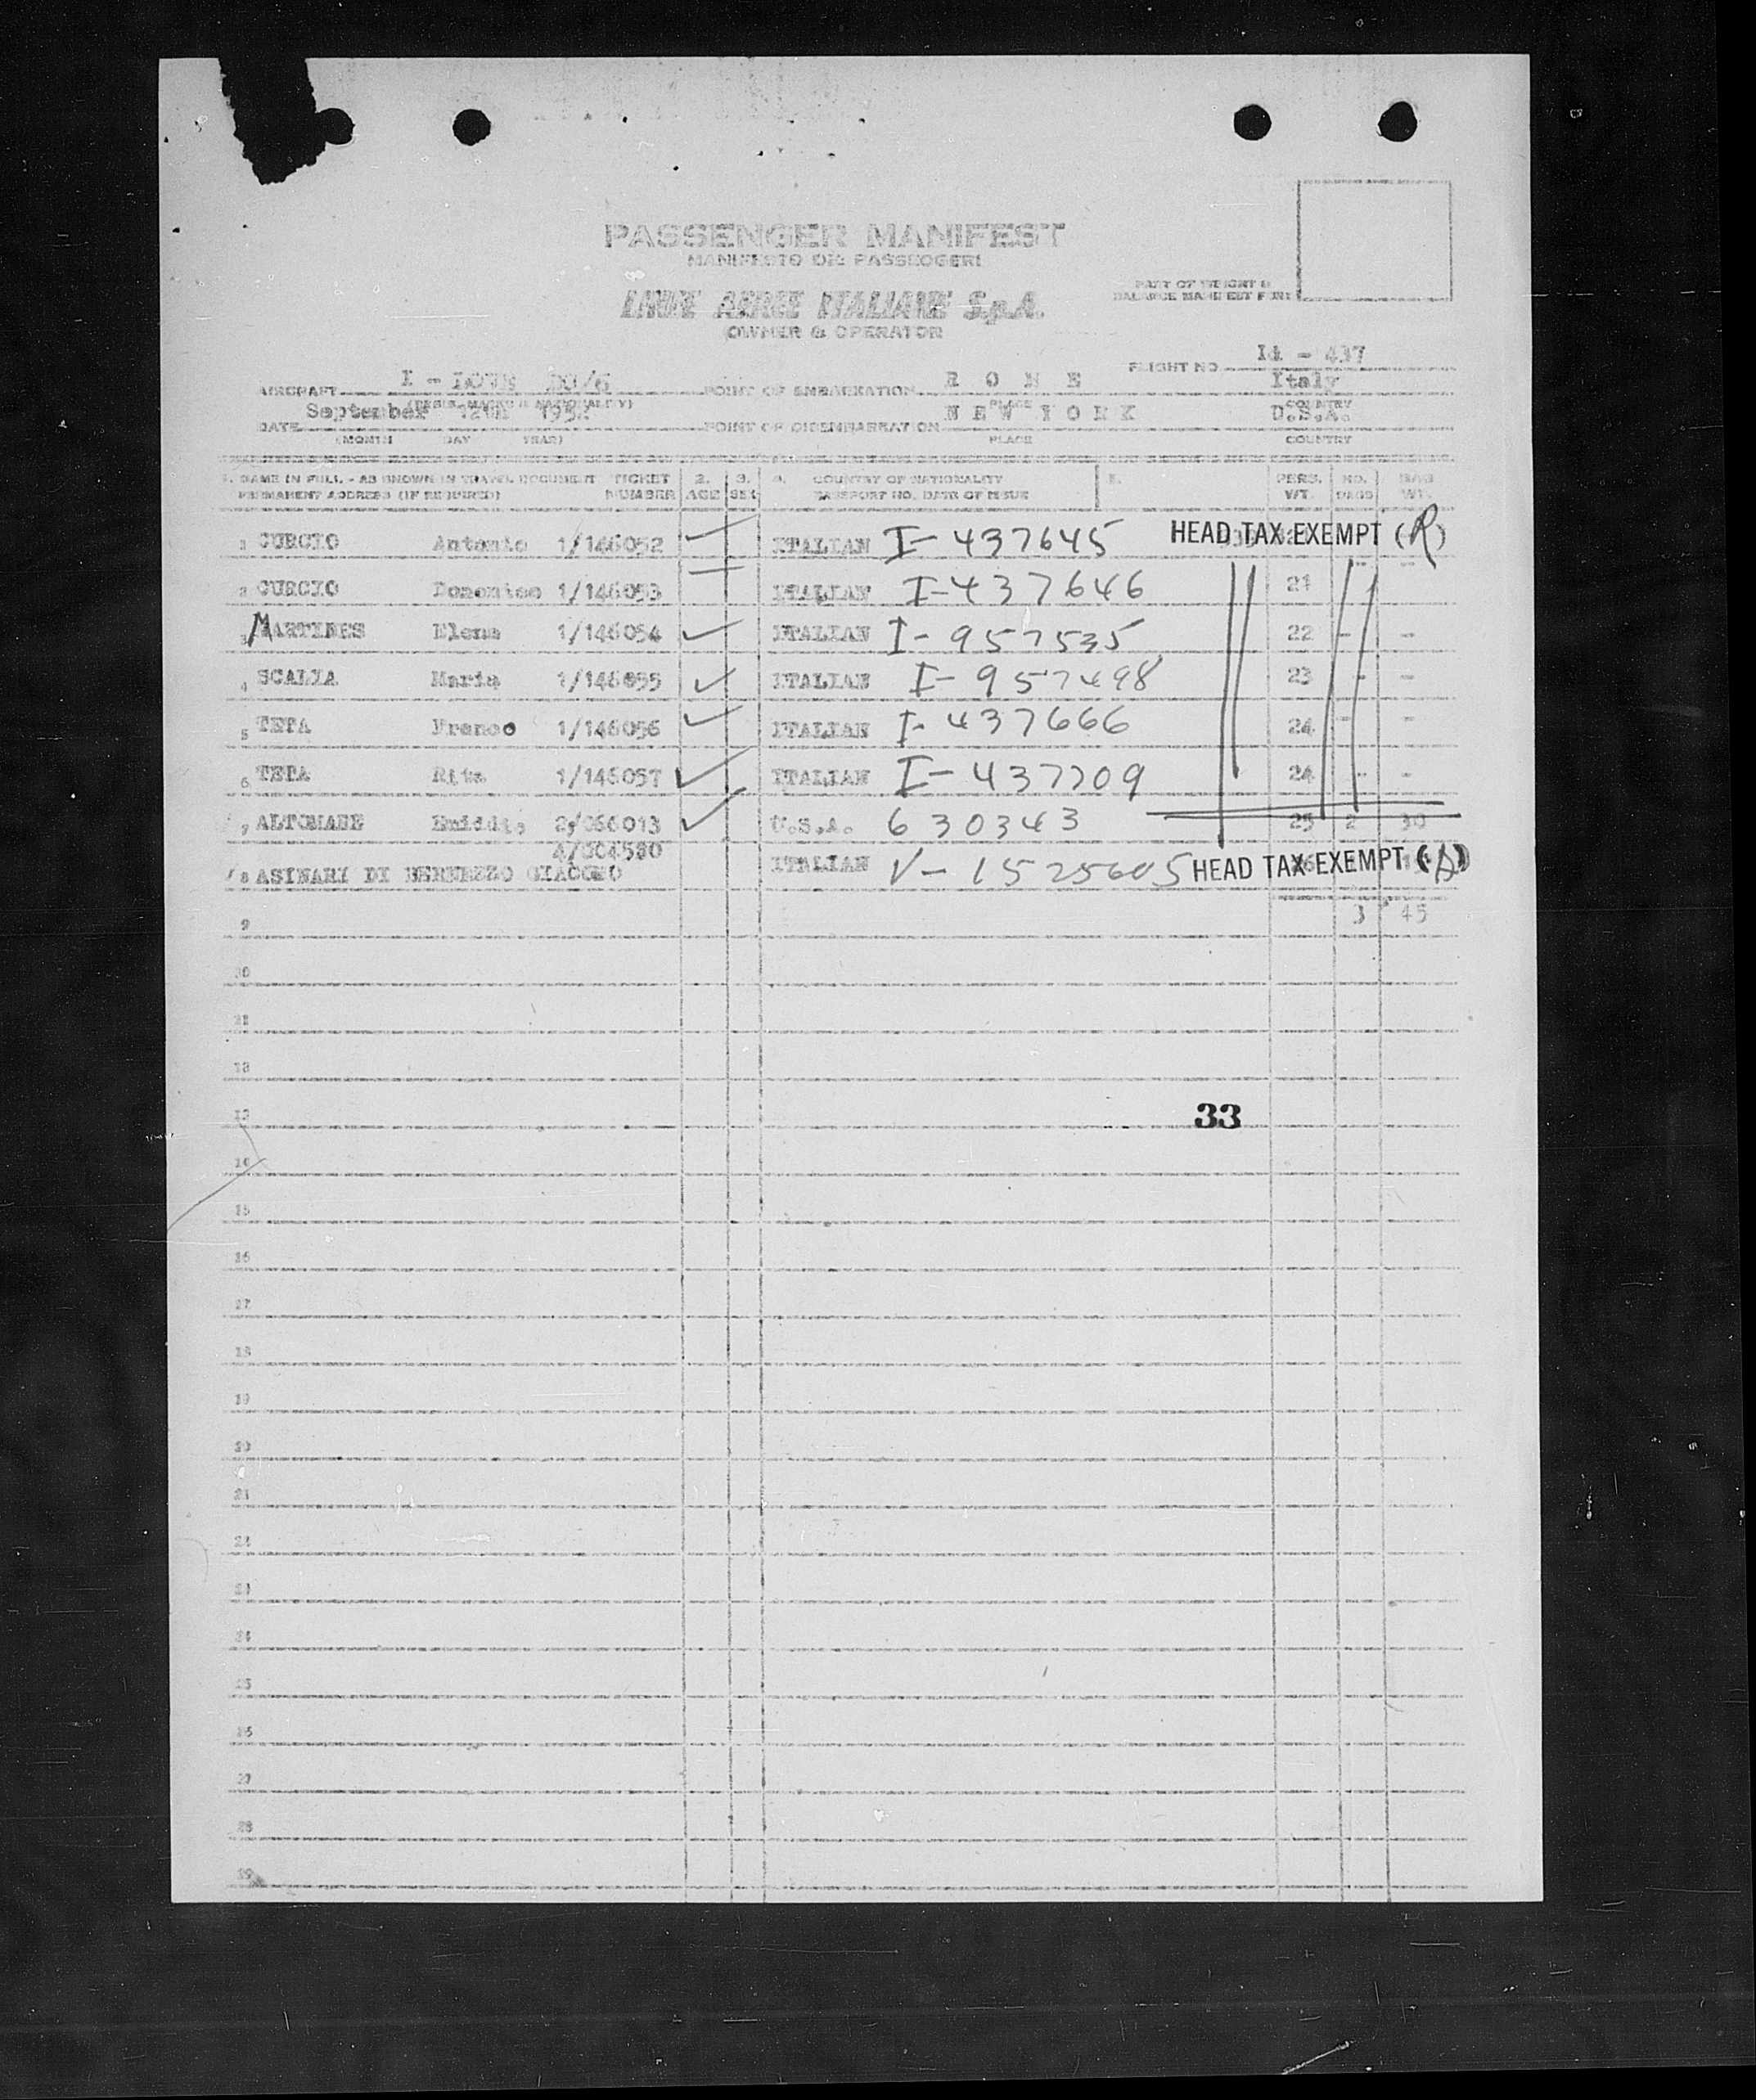 PASSENGER MANIFEST
MANIFESTO DEI PASSEGGERI
LINEE AEREE ITALIANE S.p.A.
OWNER & OPERATOR
PART OF WEIGHT &
BALANCE MANIFEST FORM
FLIGHT NO. 437
AIRCRAFT I - DC/6 POINT OF EMBARKATION R O M E Italy
DATE September 12th POINT OF DISEMBARKATION N E W Y O R K U.S.A.
(MONTH DAY YEAR) PLACE COUNTRY
1. NAME IN FULL - AS SHOWN IN TRAVEL DOCUMENT TICKET 2. 3. 4. COUNTRY OF NATIONALITY 5. PERS. NO. BAG
PERMANENT ADDRESS (IF REQUIRED) NUMBER AGE SEX PASSPORT NO. DATE OF ISSUE WT. BAGS WT.
1 CURCIO Antonio 1/146052 ITALIAN I-437645 HEAD TAX EXEMPT (R)
2 CURCIO Domenico 1/146053 ITALIAN I-437646 21 - -
3 MARTINES Elena 1/146054 ITALIAN I-957535 22 - -
4 SCALIA Maria 1/146055 ITALIAN I-957498 23 - -
5 TETA Franco 1/146056 ITALIAN I-437666 24 - -
6 TETA Rita 1/146057 ITALIAN I-437709 24 - -
7 ALTOMARE Emiddio 2/066013 U.S.A. 630343 25 2 30
4/004580
8 ASINARI DI BERNEZZO GIACOMO ITALIAN V-1525605 HEAD TAX EXEMPT (A)
9 3 45
10
11
12
13 33
14
15
16
17
18
19
20
21
22
23
24
25
26
27
28
29